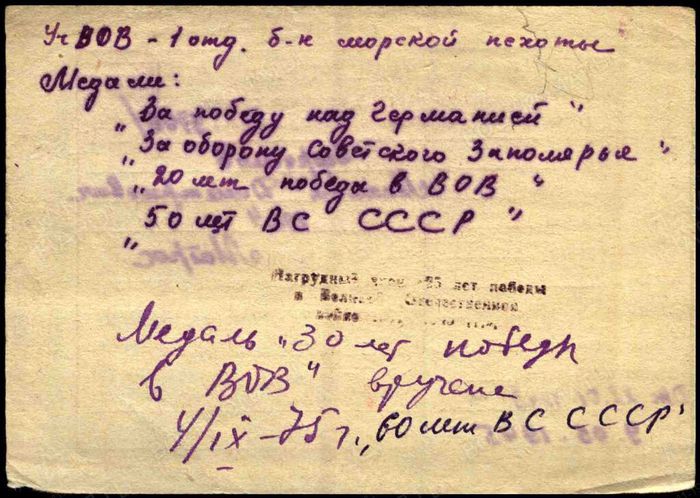 Уч ВОВ - 1 отд. б-н морской пехоты
Медали:
„За победу над Германией"
„За оборону Советского Заполярья"
„20 лет победа в ВОВ"
„50 лет ВС СССР"
„
Нагрудный знак «25 лет победы
в Великой Отечественной
войне
Медаль „30 лет победы
в ВОВ" вручена
4/IX-75 г. „60 лет ВС СССР"